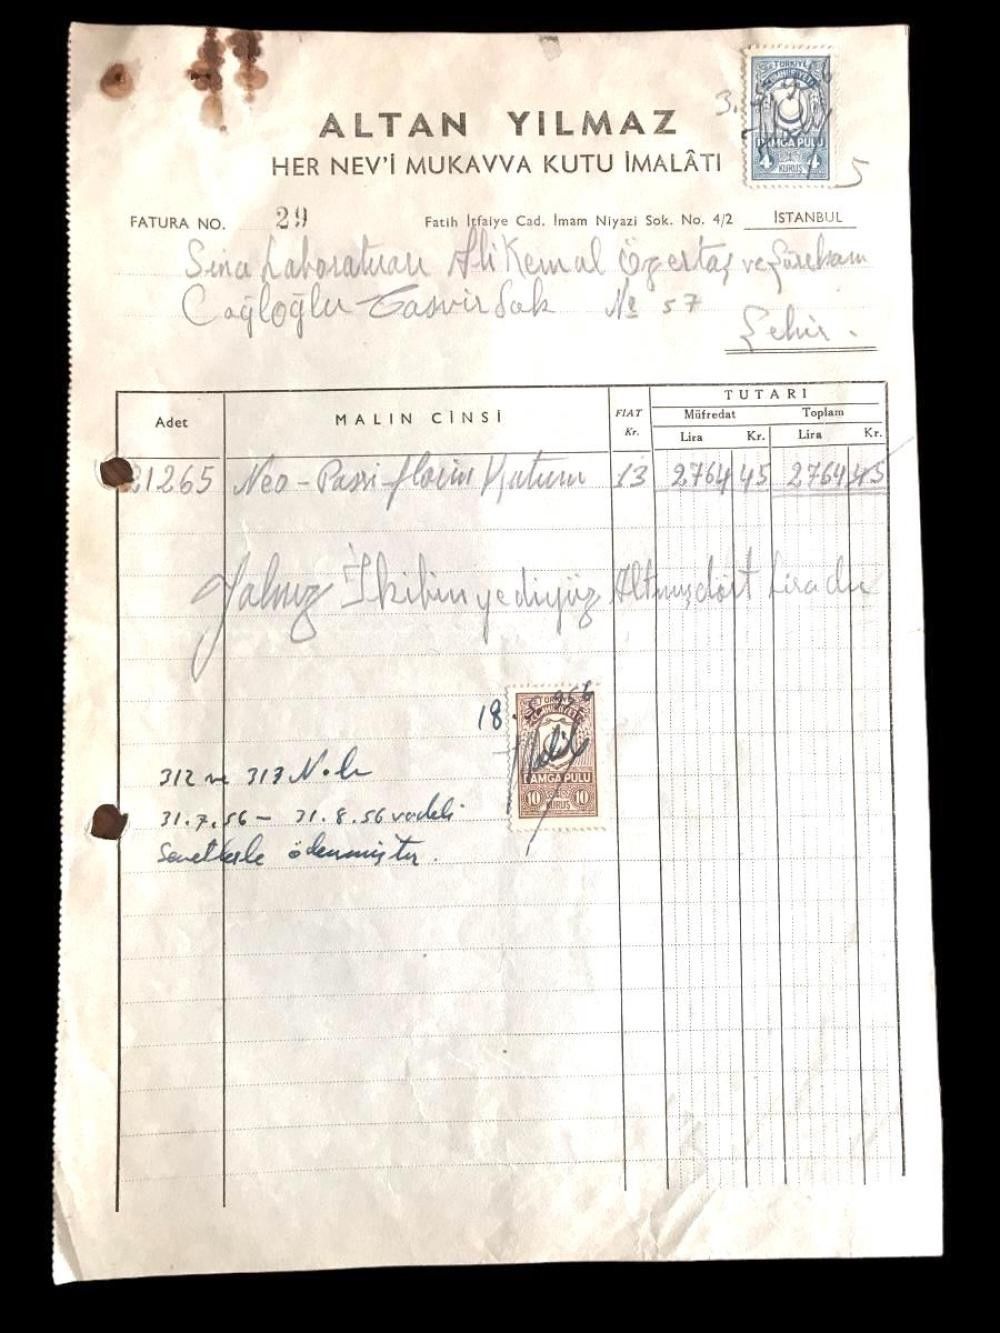 ALTAN YILMAZ
HER NEV'İ MUKAVVA KUTU İMALÂTI
TÜRKİYE
CUMHURİYETİ
DAMGA PULU
4 4
KURUŞ
FATURA NO. 29 Fatih İtfaiye Cad. İmam Niyazi Sok. No. 4/2 İSTANBUL
Sina Laboratuarı Ali Kemal Özertaş ve Şürekası
Cağloğlu Tasvir Sok № 57
Şehir.
Adet MALIN CİNSİ FİAT Kr. TUTARI
Müfredat Toplam
Lira Kr. Lira Kr.
21265 Neo-Passi-florin Kutusu 13 2764 45 2764 45
Yalnız İkibinyediyüz Altmışdört Liradır
18. 956
TÜRKİYE
CUMHURİYETİ
DAMGA PULU
10 10
KURUŞ
312 ve 313 No.lu
31.7.56 - 31.8.56 vadeli
Senetlerle ödenmiştir.